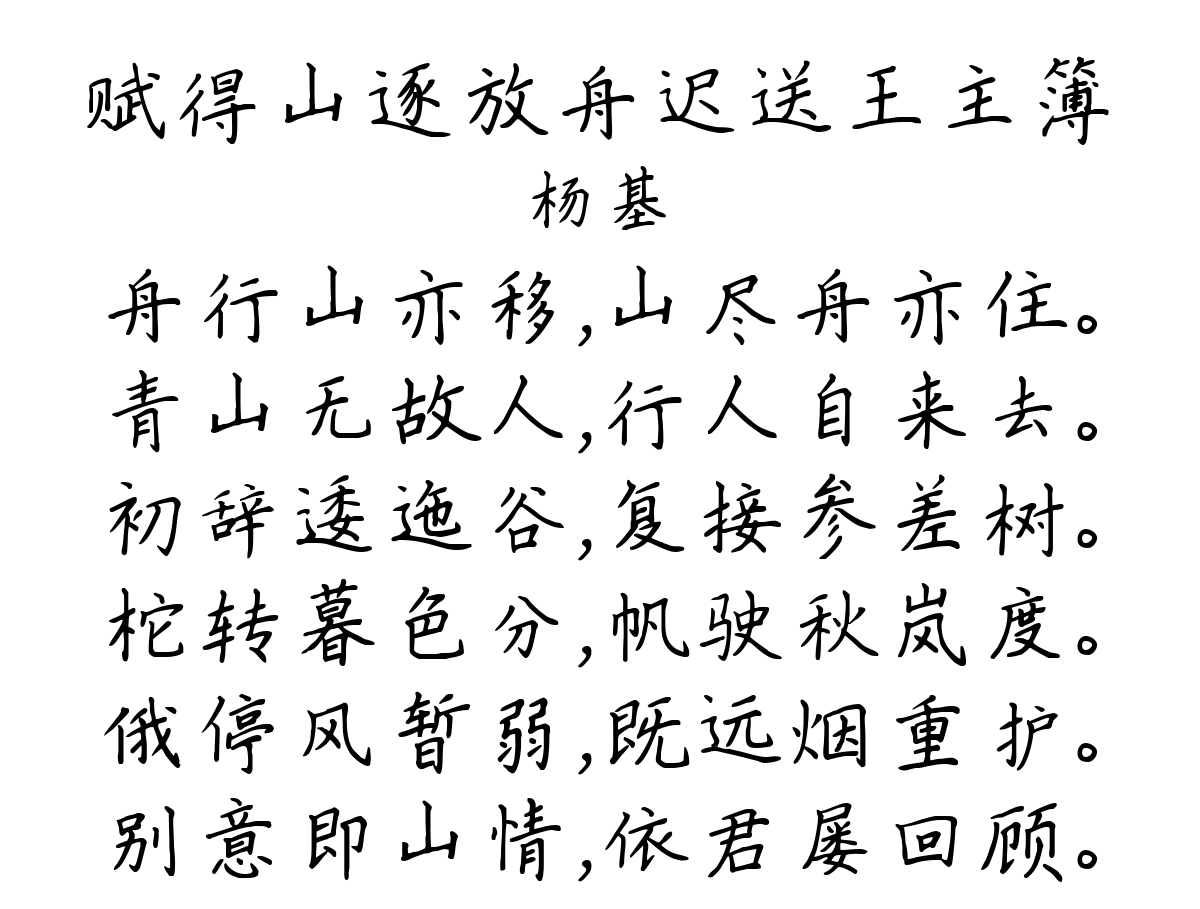 赋得山逐放舟迟送王主簿
杨基
舟行山亦移,山尽舟亦住。
青山无故人,行人自来去。
初辞逶迤谷,复接参差树。
柁转暮色分,帆驶秋岚度。
俄停风暂弱,既远烟重护。
别意即山情,依君屡回顾。